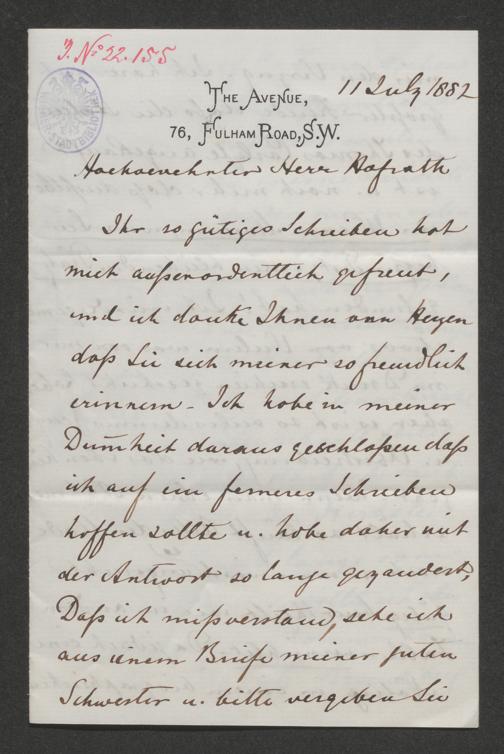 J. No 22.155
11 July 1882
THE AVENUE,
76, FULHAM ROAD, S.W.
Hochverehrter Herr Hofrath
Ihr so gütiges Schreiben hat
mich außerordentlich gefreut,
und ich danke Ihnen von Herzen
daß Sie sich meiner so freundlich
erinnern – Ich habe in meiner
Dummheit daraus geschloßen daß
ich auf ein ferneres Schreiben
hoffen sollte u. habe daher mit
der Antwort so lange gezaudert,
Daß ich mißverstand, sehe ich
aus einem Briefe meiner guten
Schwester u. bitte vergeben Sie